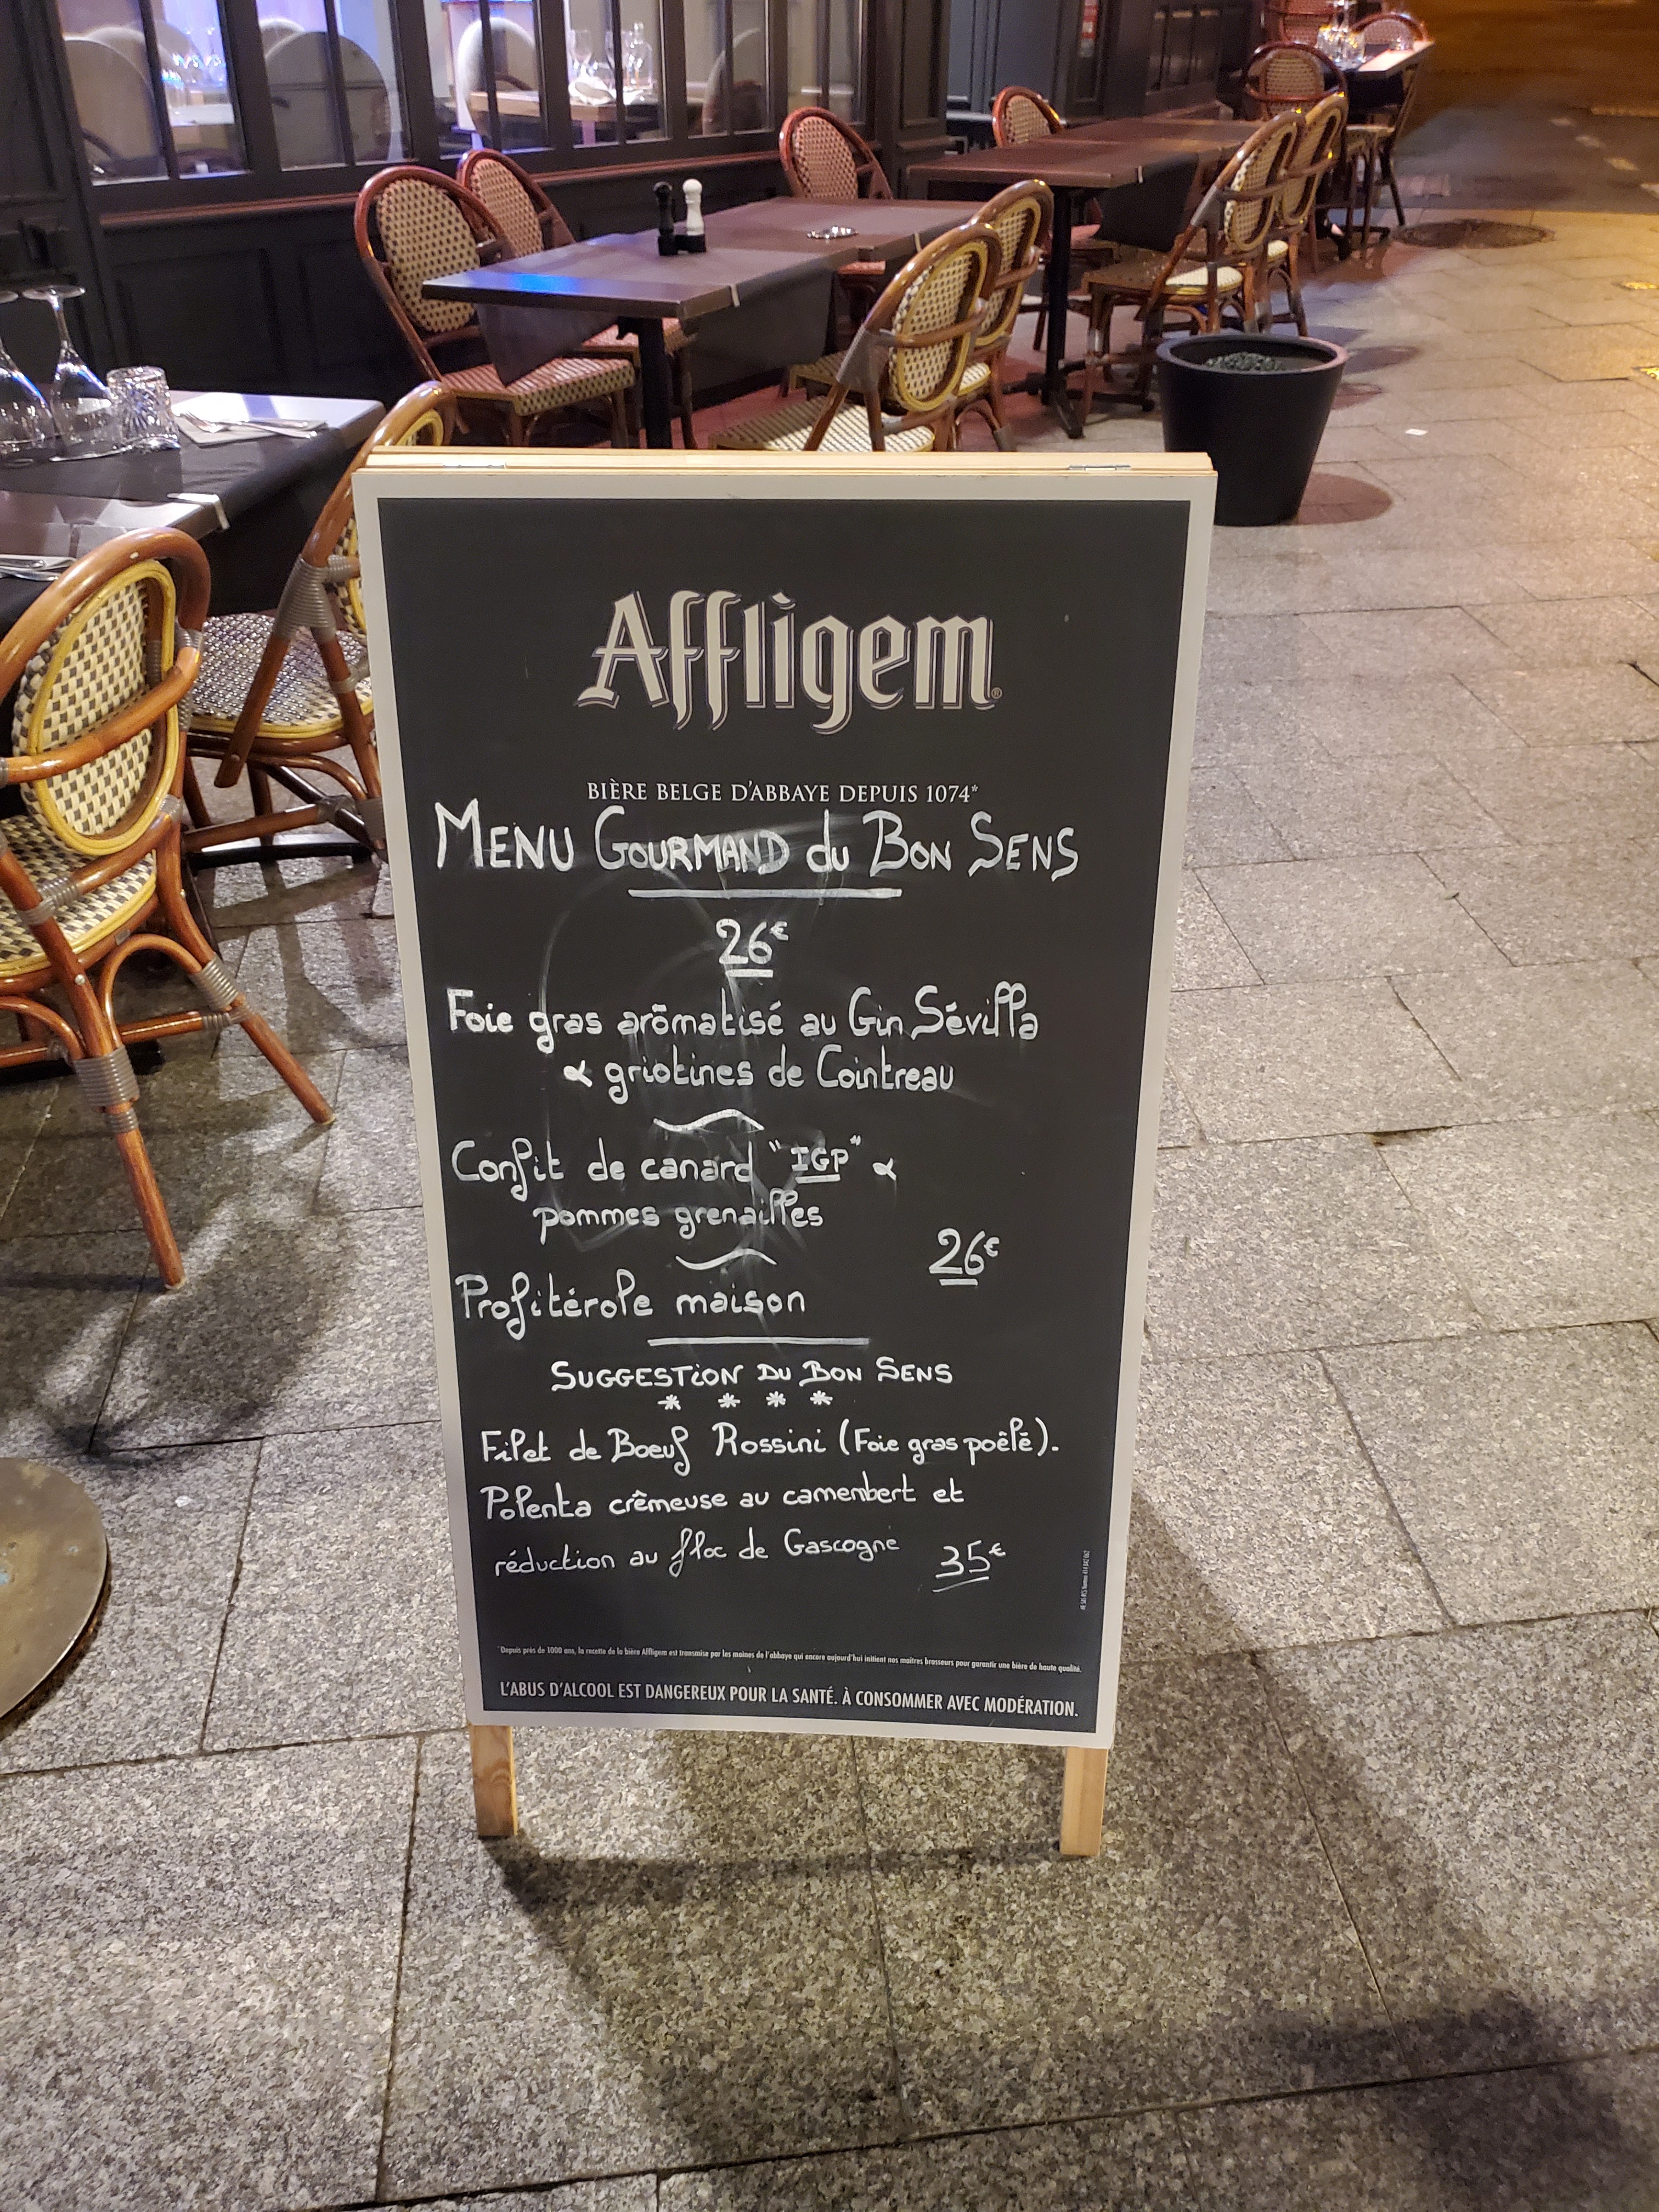 Affligem®
BIÈRE BELGE D'ABBAYE DEPUIS 1074*
MENU GOURMAND du BON SENS
26€
Foie gras arômatisé au Gin Sévilla
& griotines de Cointreau
Confit de canard "IGP" &
pommes grenailles
26€
Profitérole maison
SUGGESTION DU BON SENS
* * * *
Filet de Boeuf Rossini (Foie gras poêlé).
Polenta crêmeuse au camenbert et
réduction au floc de Gascogne 35€
*Depuis près de 1000 ans, la recette de la bière Affligem est transmise par les moines de l'abbaye qui encore aujourd'hui initient nos maîtres brasseurs pour garantir une bière de haute qualité.
L'ABUS D'ALCOOL EST DANGEREUX POUR LA SANTÉ. À CONSOMMER AVEC MODÉRATION.